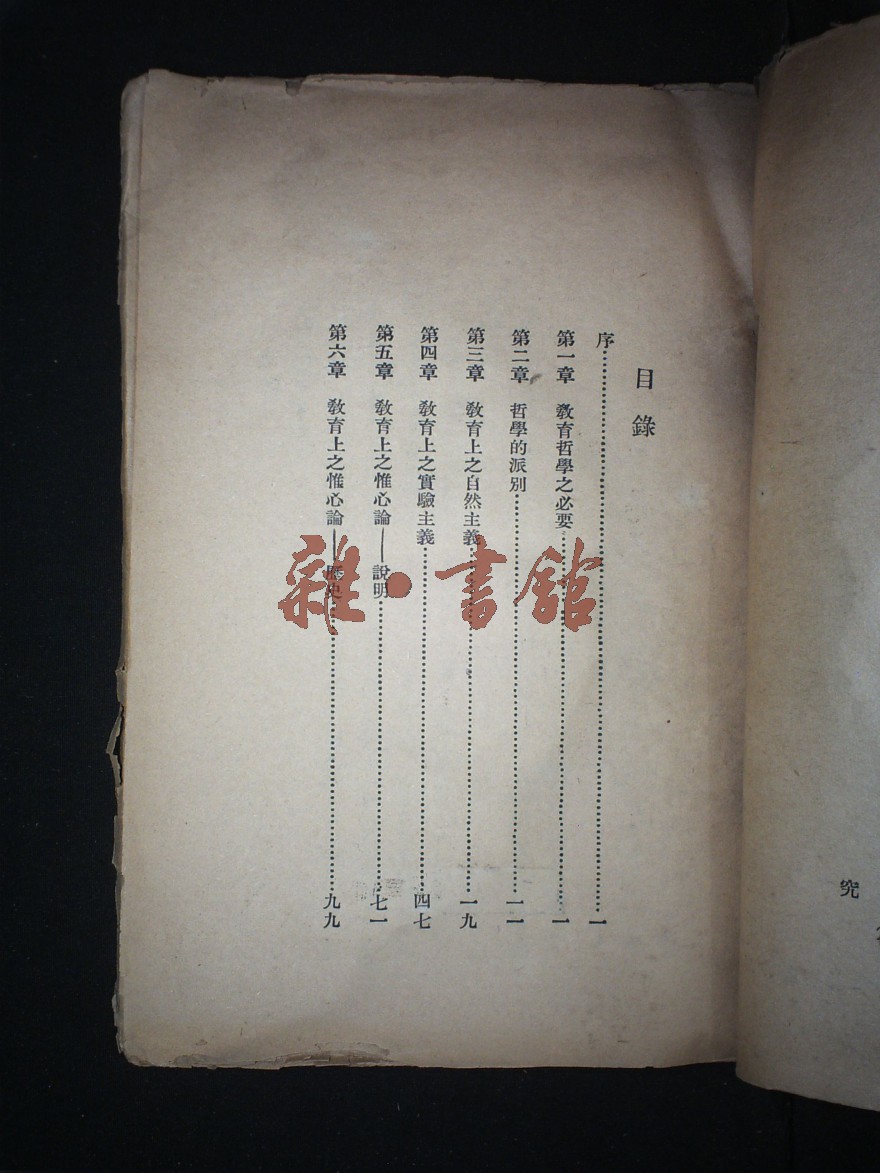 目錄
序……一
第一章 教育哲學之必要……一
第二章 哲學的派別……一一
第三章 教育上之自然主義……一九
第四章 教育上之實驗主義……四七
第五章 教育上之惟心論——說明……七一
第六章 教育上之惟心論——歷史……九九
雜·書館
究